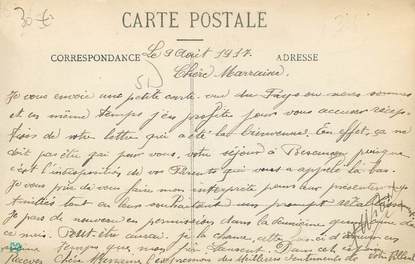 30 €
CARTE POSTALE
CORRESPONDANCE Le 9 Août 1917. ADRESSE
Chère Marraine.
Je vous envoie une petite carte vue du Pays ou nous sommes
et en même temps j'en profite pour vous accuser récep-
tion de votre lettre qui a été la bienvenue. En effet, ça ne
doit pas être gai pour vous, votre séjour à Besançon, puisque
c'est l'indisposition de vos Parents qui vous a appelé la bas.
Je vous prie de vous faire mon interprète pour leur présenter
amitiés tout en leur souhaitant un prompt
Je pars de nouveau en permission dans la quinzaine de
ce mois. Peut être aurai je la chance, cette
temps que mon
Recevez Chère Marraine l'expression des Meilleurs Sentiments de votre filleul